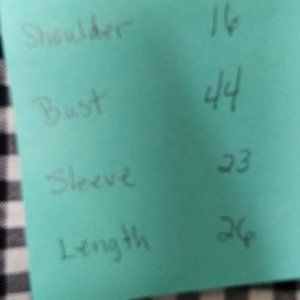 Shoulder 16
Bust 44
Sleeve 23
Length 26